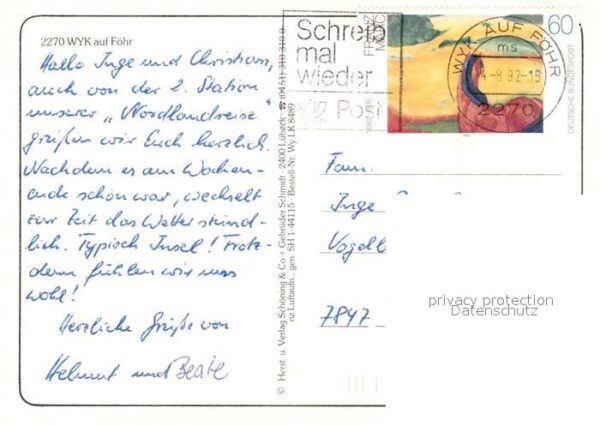 2270 WYK auf Föhr
Hallo Inge und Christian,
auch von der 2. Station
unserer „Nordlandreise“
grüßen wir Euch herzlich.
Nachdem es am Wochen-
ende schön war, wechselt
zur Zeit das Wetter stünd-
lich. Typisch Insel! Trotz-
dem fühlen wir uns
wohl!
Herzliche Grüße von
Helmut und Beate
© Herst. u. Verlag Schöning & Co + Gebrüder Schmidt · 2400 Lübeck · ☎ (0451) 310 310
nz Luftaufn., gen. SH 1-44115 · Bestell-Nr. Wy LK 8489
Schreib
mal
wieder
Post
FRANZ
60
DEUTSCHE BUNDESPOST
WYK AUF FÖHR
ms
4-8.92-15
2270
Fam.
Inge
7847
privacy protection
Datenschutz